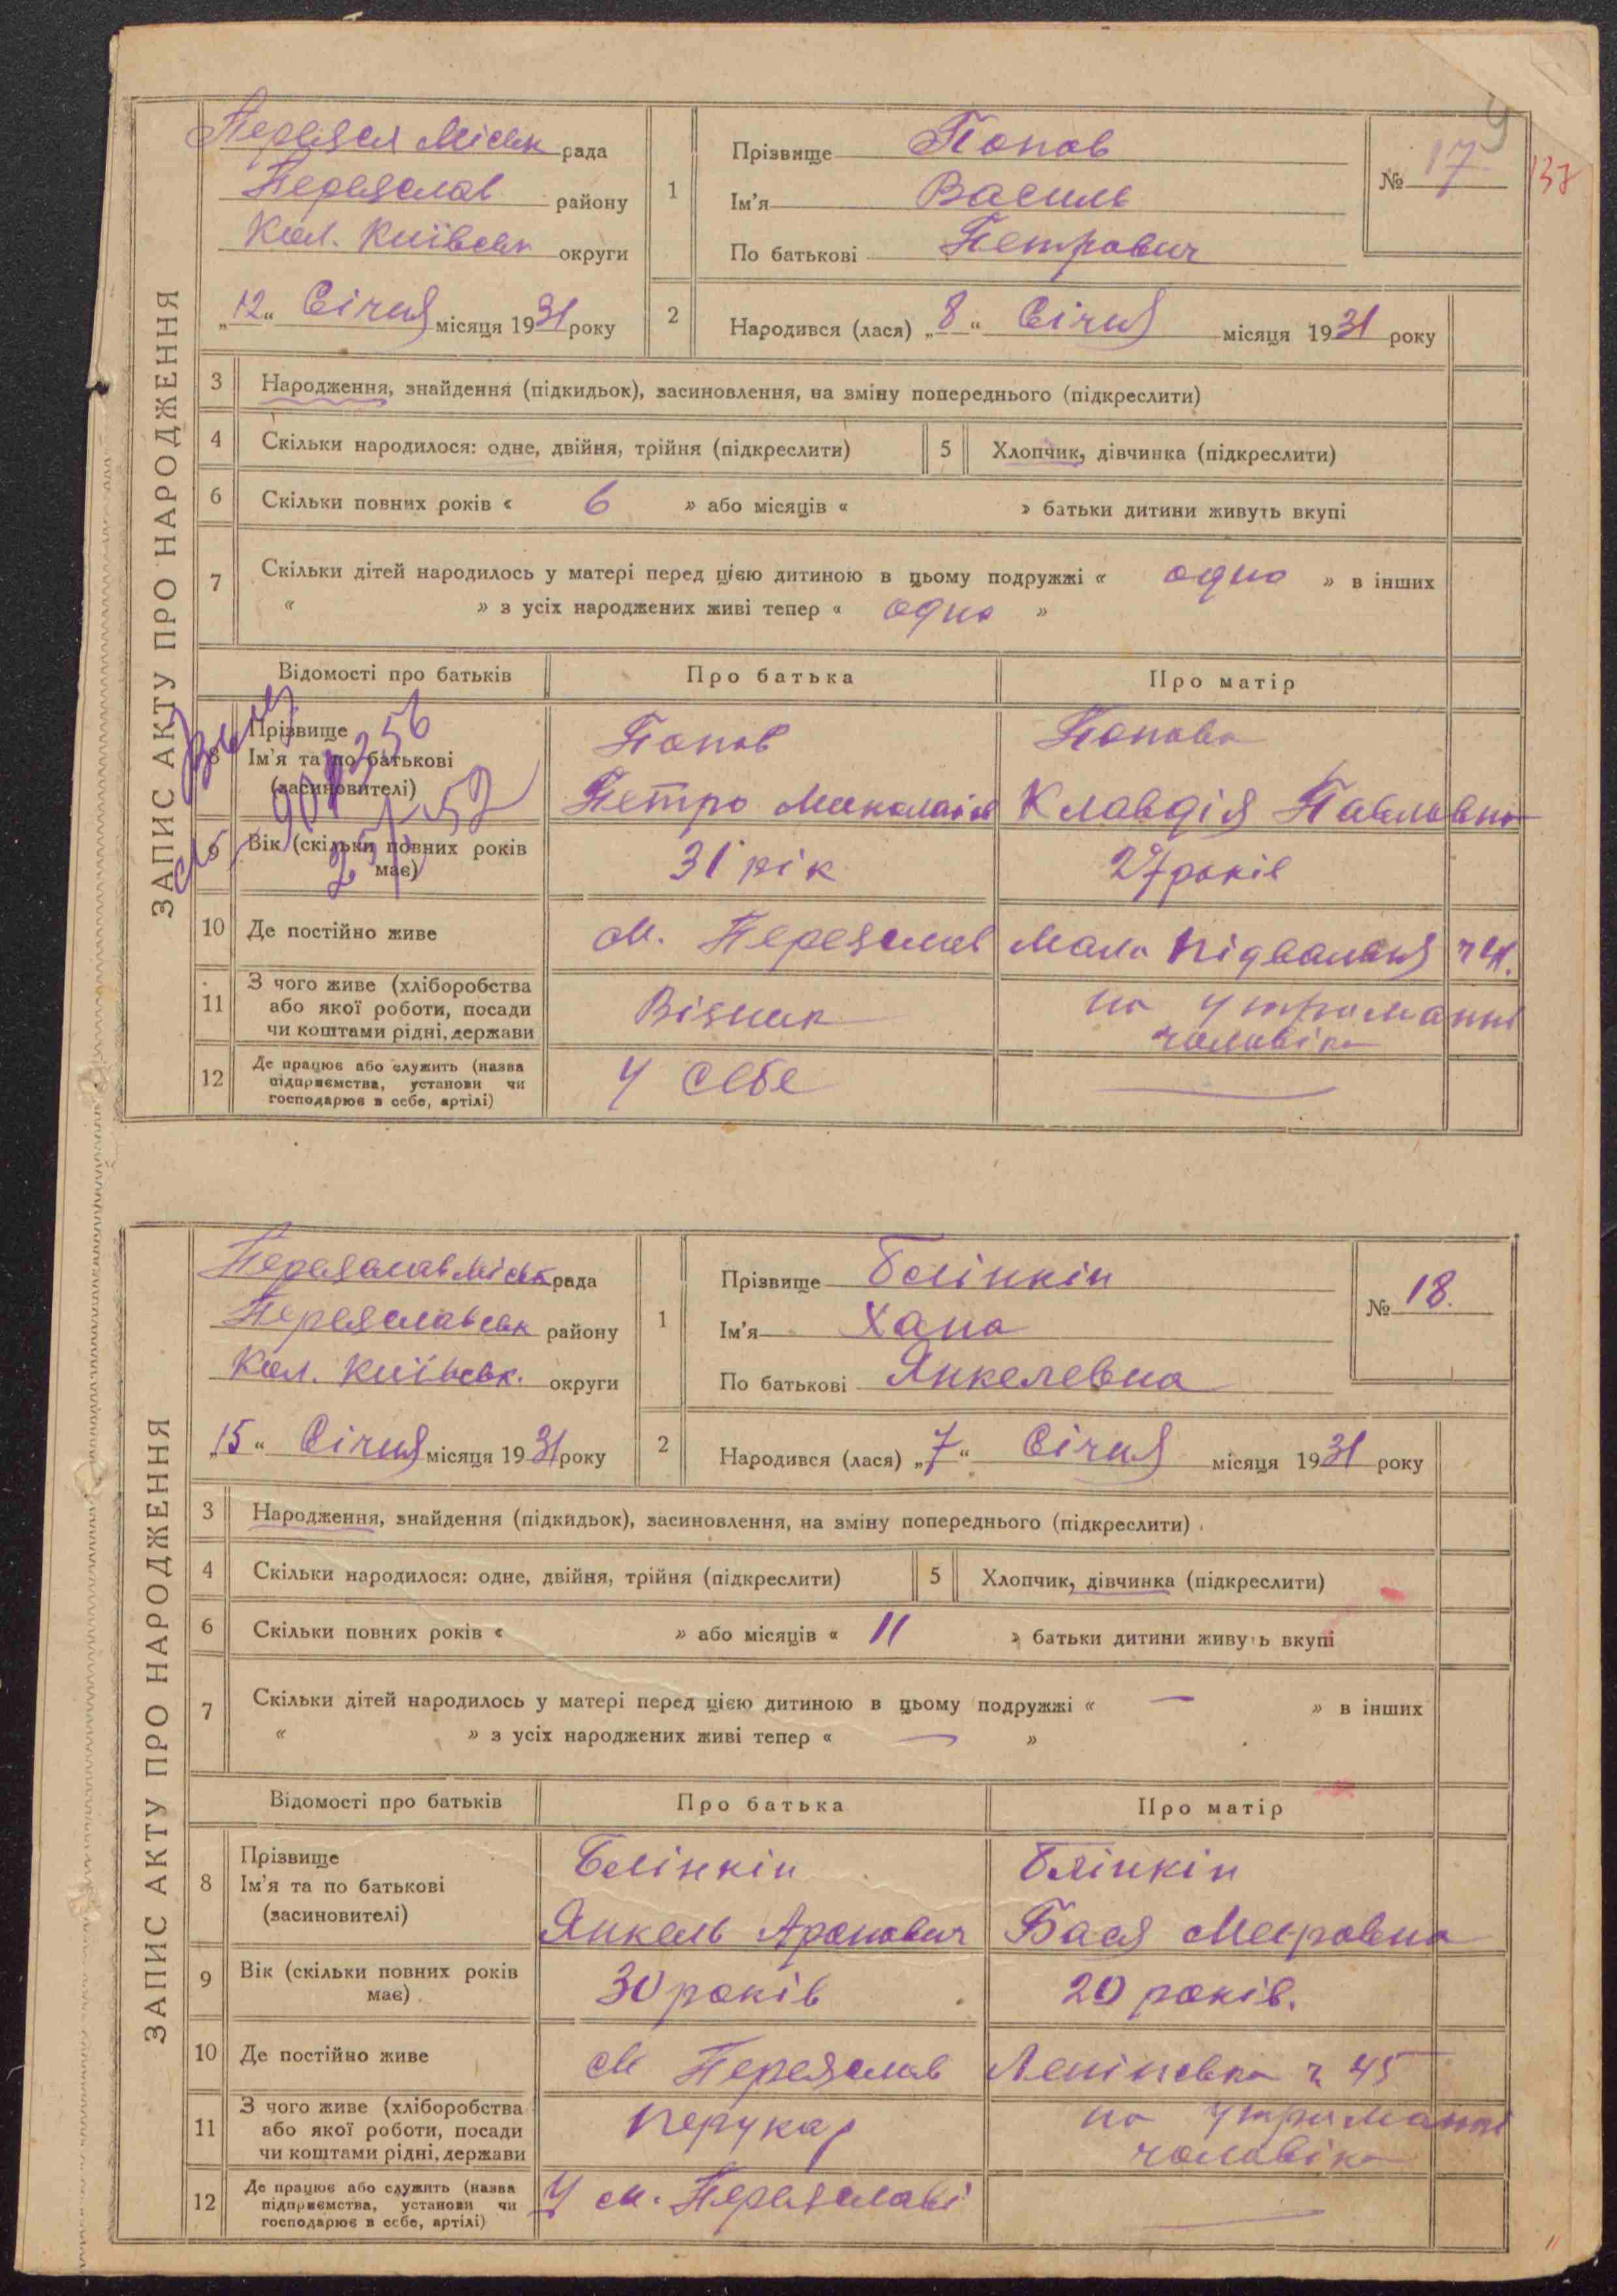 9
137
ЗАПИС АКТУ ПРО НАРОДЖЕННЯ
Переясл Міськ рада
Переяслав району
Кол. Київськ округи
„12“ Січня місяця 1931 року
1
Прізвище Попов
Ім'я Василь
По батькові Петрович
№ 17
2
Народився (лася) „8“ Січня місяця 1931 року
3 Народження, знайдення (підкидьок), засиновлення, на зміну попереднього (підкреслити)
4 Скільки народилося: одне, двійня, трійня (підкреслити)
5 Хлопчик, дівчинка (підкреслити)
6 Скільки повних років « 6 » або місяців « » батьки дитини живуть вкупі
7 Скільки дітей народилось у матері перед цією дитиною в цьому подружжі « одно » в інших
« » з усіх народжених живі тепер « одно »
Відомості про батьків Про батька Про матір
8 Прізвище
Ім'я та по батькові
(засиновителі)
Попов
Петро Миколаїв
Попова
Клавдія Павловна
9 Вік (скільки повних років
має)
31 рік
27 років
10 Де постійно живе
м. Переяслав Мала Підвальня
11 З чого живе (хліборобства
або якої роботи, посади
чи коштами рідні, держави
Візник
на утриманні
чоловіка
12 Де працює або служить (назва
підприємства, установи чи
господарює в себе, артілі)
У себе
ЗАПИС АКТУ ПРО НАРОДЖЕННЯ
Переяслав Міськ рада
Переяславськ району
Кол. Київськ. округи
„15“ Січня місяця 1931 року
1
Прізвище Блінкін
Ім'я Хана
По батькові Янкелевна
№ 18.
2
Народився (лася) „7“ Січня місяця 1931 року
3 Народження, знайдення (підкидьок), засиновлення, на зміну попереднього (підкреслити)
4 Скільки народилося: одне, двійня, трійня (підкреслити)
5 Хлопчик, дівчинка (підкреслити)
6 Скільки повних років « » або місяців « 11 » батьки дитини живуть вкупі
7 Скільки дітей народилось у матері перед цією дитиною в цьому подружжі « — » в інших
« » з усіх народжених живі тепер « — »
Відомості про батьків Про батька Про матір
8 Прізвище
Ім'я та по батькові
(засиновителі)
Блінкін
Янкель Аронович
Блінкін
Бася Меєровна
9 Вік (скільки повних років
має)
30 років
20 років.
10 Де постійно живе
м Переяслав Ленінська ч 45
11 З чого живе (хліборобства
або якої роботи, посади
чи коштами рідні, держави
перукар
на утриманні
чоловіка
12 Де працює або служить (назва
підприємства, установи чи
господарює в себе, артілі)
У м. Переяславі